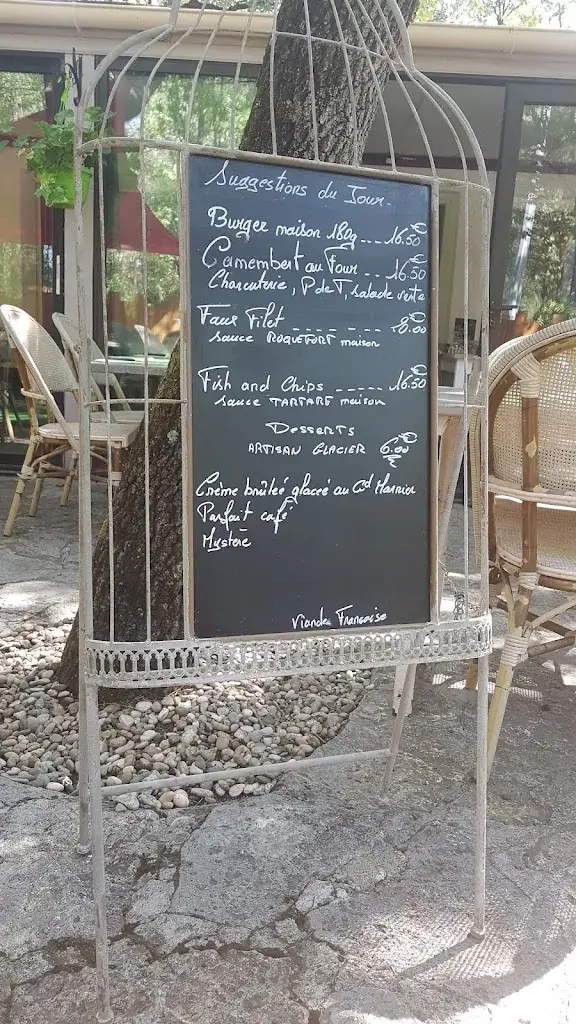 Suggestions du Jour.
Burger maison 180g ---- 16.50€
Camembert au Four --- 16.50€
Charcuterie, P de T, salade verte
Faux Filet -------- 18.00€
sauce ROQUEFORT maison
Fish and Chips ------ 16.50€
sauce TARTARE maison
DESSERTS
ARTISAN GLACIER 6.00€
Crème brûleé glaceé au Gd Marnier
Parfait café
Mystère
Viande Française